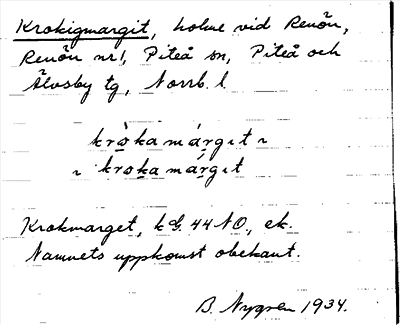 Krokigmargit, holme vid Renön,
Renön nr 1, Piteå sn, Piteå och
Älvsby tg, Norrb. l.
krokamárgit
krokamárgit
Krokmarget, kG. 44 NO, ek.
Namnets uppkomst obekant.
B. Nygren 1934.